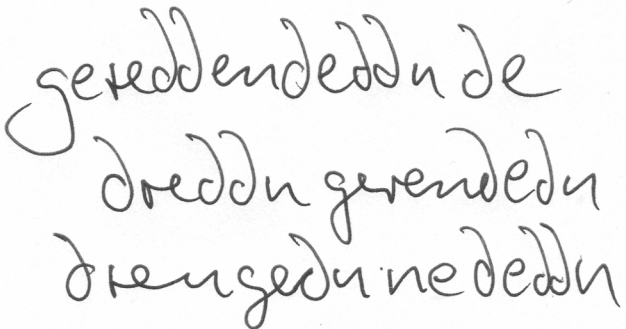 gereddendeddn de
dreddn gerendedn
drengedn ne deddn